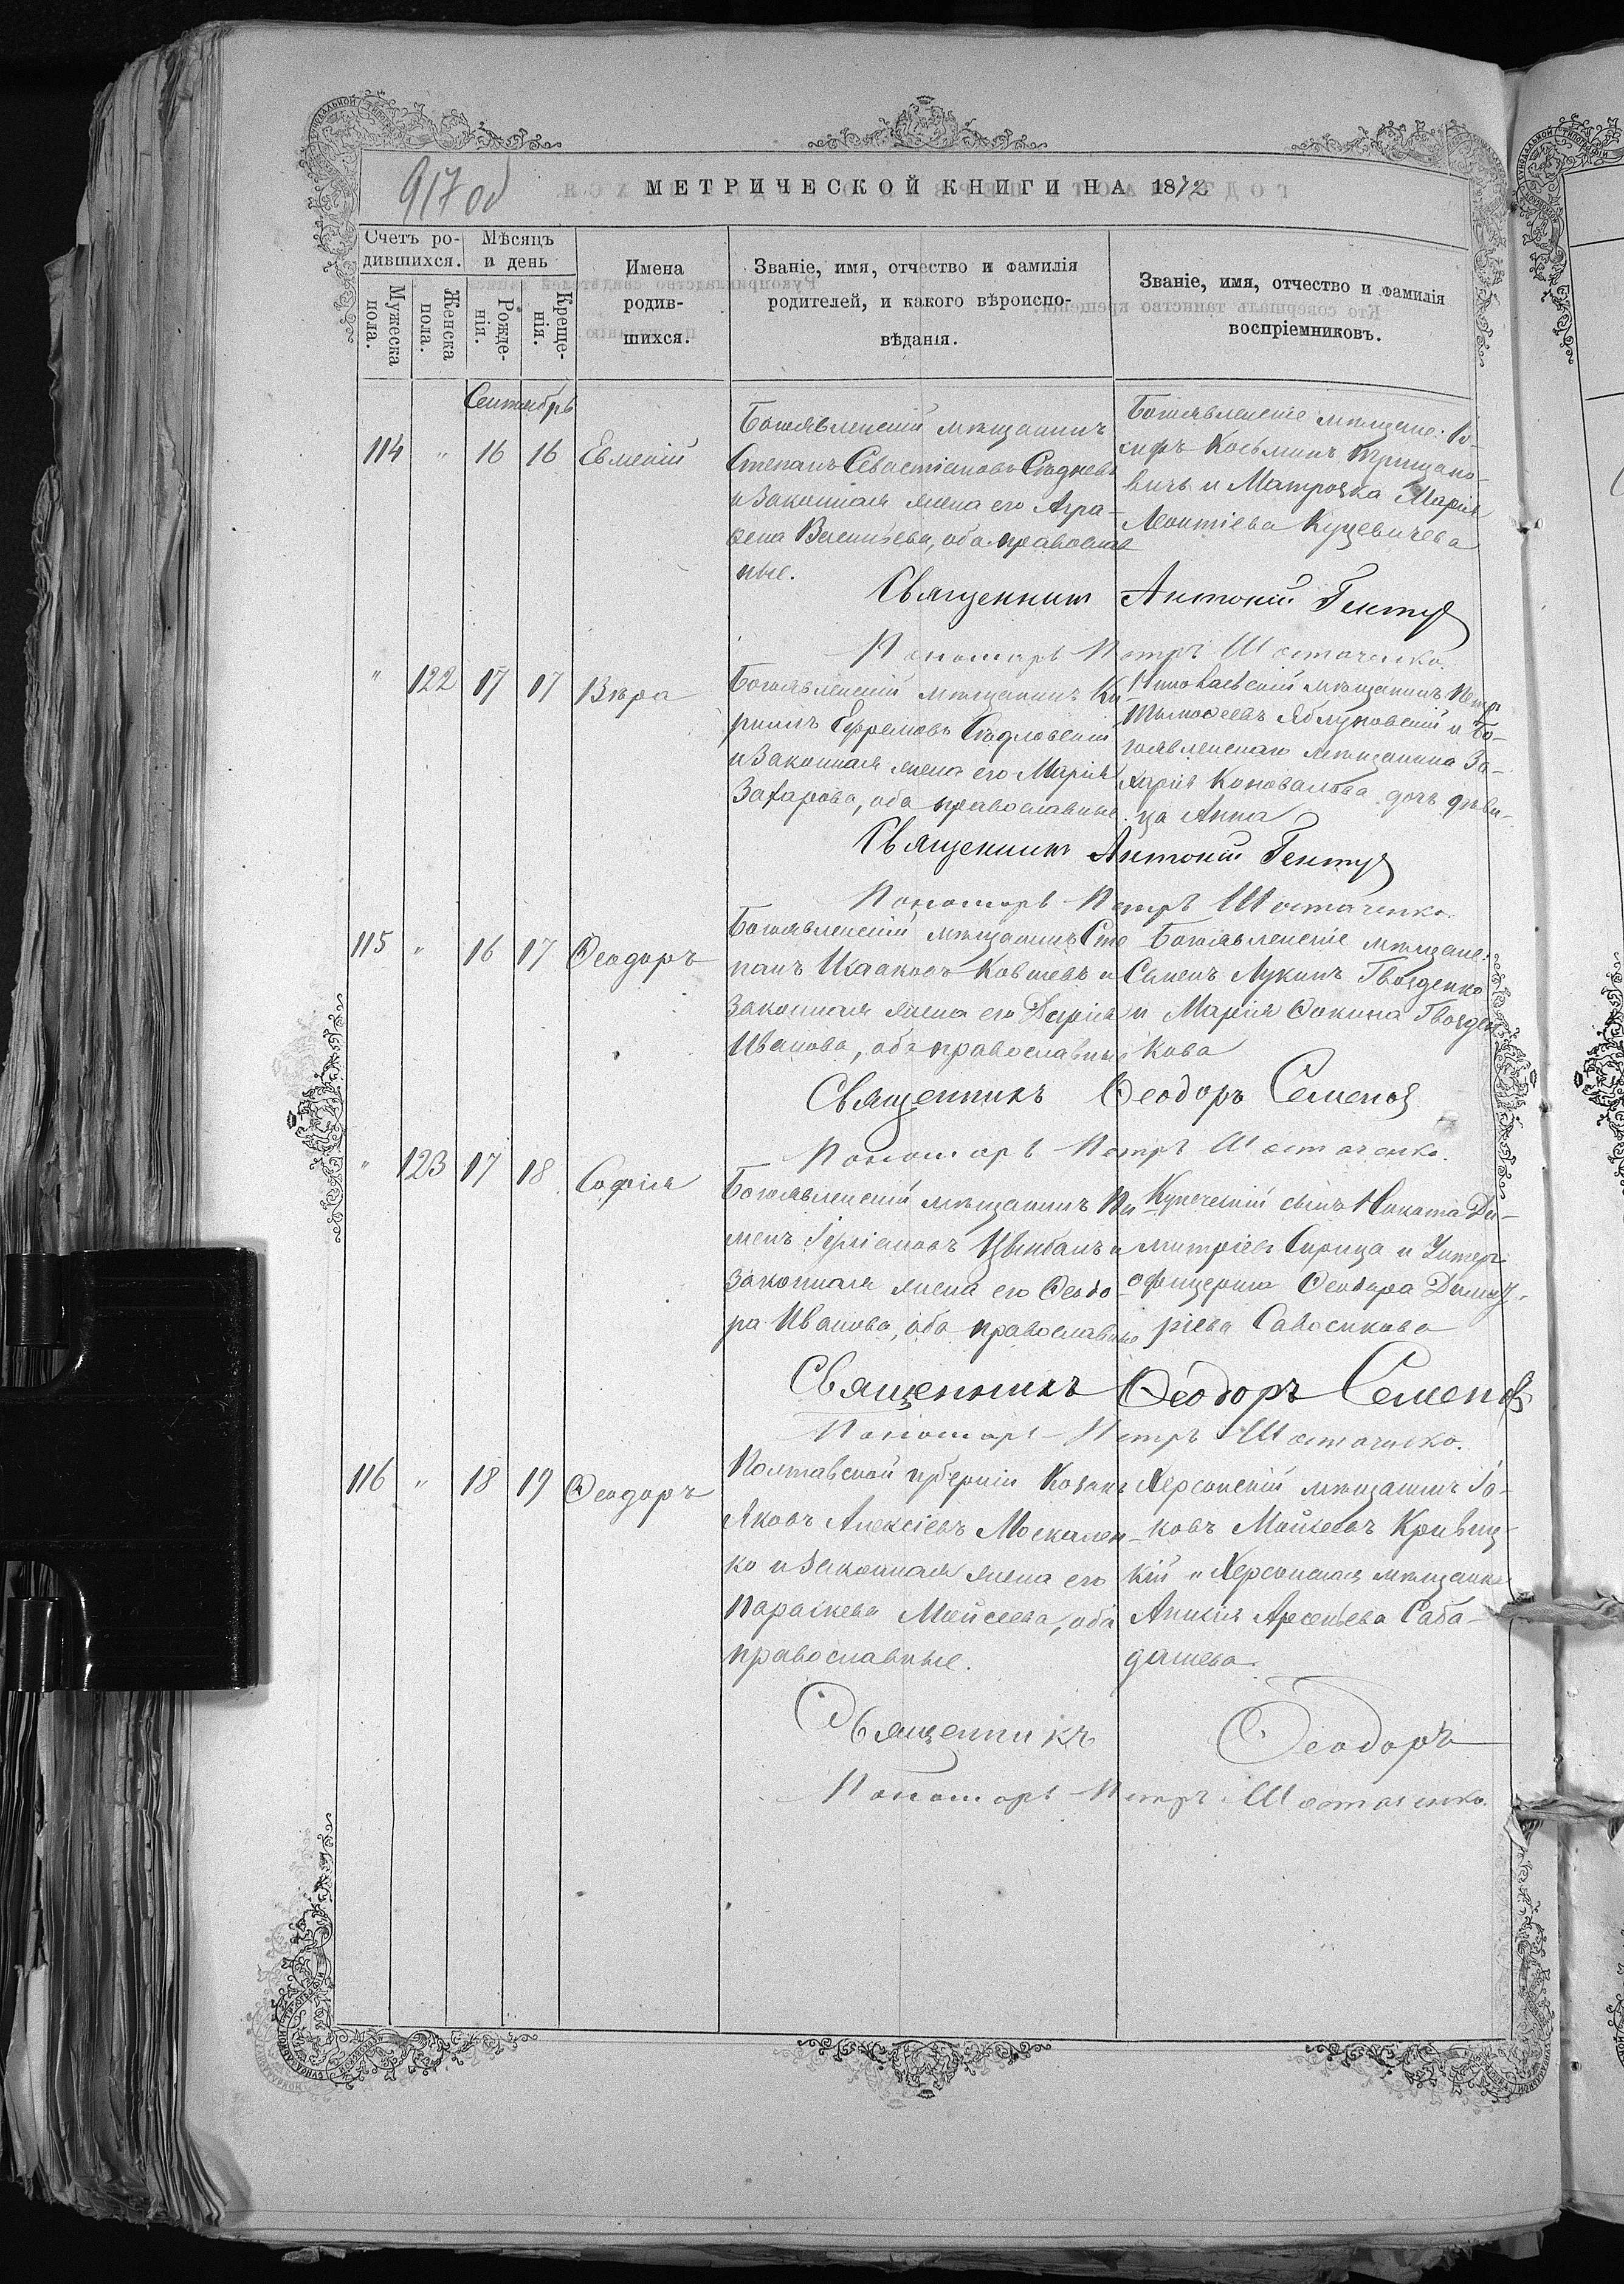 917 об
МЕТРИЧЕСКОЙ КНИГИ НА 1872
Счетъ ро-
дившихся.
Мѣсяцъ
и день
Мужеска
пола.
Женска
пола.
Рожде-
нія.
Креще-
нія.
Имена
родив-
шихся.
Званіе, имя, отчество и фамилія
родителей, и какого вѣроиспо-
вѣданія.
Званіе, имя, отчество и фамилія
воспріемниковъ.
Сентябрь
114 " 16 16 Евменій
Богоявленскій мѣщанинъ
Степанъ Севастіановъ
и законная жена его Агра-
фена Васильева, оба православ
ные.
Богоявленскіе мѣщане: Іо-
сифъ Косьминъ
вичъ и Матроска Марія
Леонтіева Куцевичева
Священникъ Антоній
Пономарь Петръ Шостаченко.
" 122 17 17 Вѣра
Богоявленскій мѣщанинъ Ки-
рилъ Ефремовъ Сѣдловскій
и законная жена его Марія
Захарова, оба православные.
Николаевскій мѣщанинъ Петръ
Тимофеевъ Яблуновскій и Бо-
гоявленскаго мѣщанина За-
харія Коновалова дочь дѣви-
ца Анна
Священникъ Антоній
Пономарь Петръ Шостаченко.
115 " 16 17 Ѳеодоръ
Богоявленскій мѣщанинъ Сте
панъ Исааковъ Ковшевъ и
законная жена его Дарія
Иванова, оба православные
Богоявленскіе мѣщане:
Семенъ Лукинъ Гвозденко
и Марія Фокина Гвозден
кова
Священникъ Ѳеодоръ Семеновъ
Пономарь Петръ Шостаченко.
" 123 17 18 Софія
Богоявленскій мѣщанинъ Пи
менъ Цымбалъ и
законная жена его Ѳеодо
ра Иванова, оба православные
Купеческій сынъ Никита Ди-
митріевъ Сирица и Унтеръ
офицерша Ѳеодора Димит-
ріева Савоськова
Священникъ Ѳеодоръ Семеновъ
Пономарь Петръ Шостаченко.
116 " 18 19 Ѳеодоръ
Полтавской губерніи Козакъ
Яковъ Алексіевъ Москален-
ко и законная жена его
Параскева Моисеева, оба
православные.
Херсонскій мѣщанинъ Іа-
ковъ Моисеевъ Кривиц-
кій и Херсонская мѣщанка
Анисія Арсеньева Саба-
дашева.
Священникъ Ѳеодоръ
Пономарь Петръ Шостаченко.